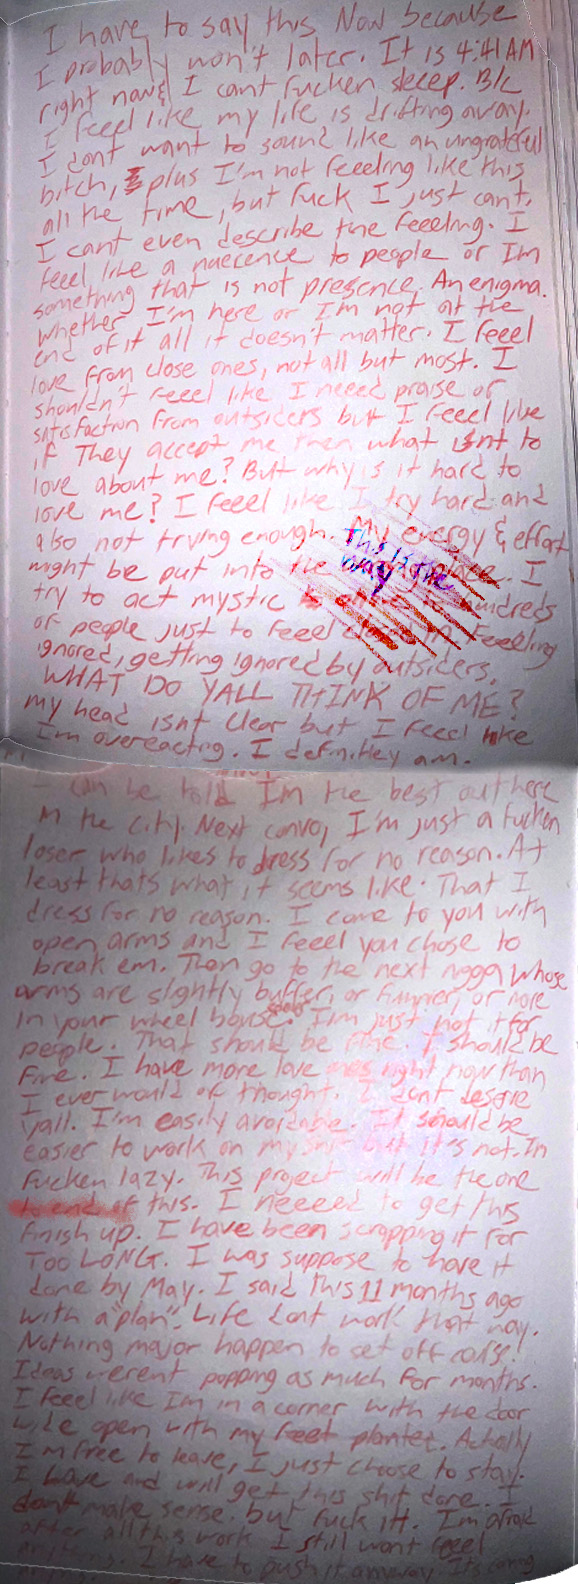 I have to say this Now because
I probably won't later. It is 4:41 AM
right now & I cant fucken sleep. B/c
I feeel like my life is drifting away.
I dont want to sound like an ungrateful
bitch, plus I'm not feeeling like this
all the time, but fuck I just cant.
I cant even describe the feeeling. I
feeel like a nuecence to people or Im
something that is not presence. An enigma.
Whether I'm here or I'm not at the
end of it all it doesn't matter. I feeel
love from close ones, not all but most. I
shouldn't feeel like I neeed praise or
satisfaction from outsiders but I feeel like
if They accept me then what isnt to
love about me? But why is it hard to
love me? I feeel like I try hard and
also not trying enough. My energy & effort
might be put into the I
This is the
way
try to act mystic hundreds
of people just to feeel feeeling
ignored, getting ignored by outsiders.
WHAT DO YALL THINK OF ME?
my head isnt clear but I feeel like
Im overeacting. I definitley am.
I can be told Im the best out here
in the city. Next convo, I'm just a fucken
loser who likes to dress for no reason. At
least thats what it seems like. That I
dress for no reason. I come to you with
open arms and I feeel you chose to
break em. Then go to the next nigga whose
arms are slightly buffer, or funnier, or more
in your wheel house. I'm just not it for
people. That should be fine. I should be
fine. I have more love right now than
I ever would of thought. I dont deserve
yall. I'm easily avoidable. It should be
easier to work on my shit but it's not. Im
fucken lazy. This project will be the one
to end of this. I neeeed to get this
finish up. I have been scrapping it for
TOO LONG. I was suppose to have it
done by May. I said this 11 months ago
with a "plan". Life dont work that way.
Nothing major happen to set off
Ideas werent popping as much for months.
I feeel like Im in a corner with the door
wide open with my feet planted. Actually
I'm free to leave, I just choose to stay.
I have and will get this shit done. I
dont make sense. but fuck it. I'm afraid
after all this work I still wont feeel
anything. I have to push it anyway. Its